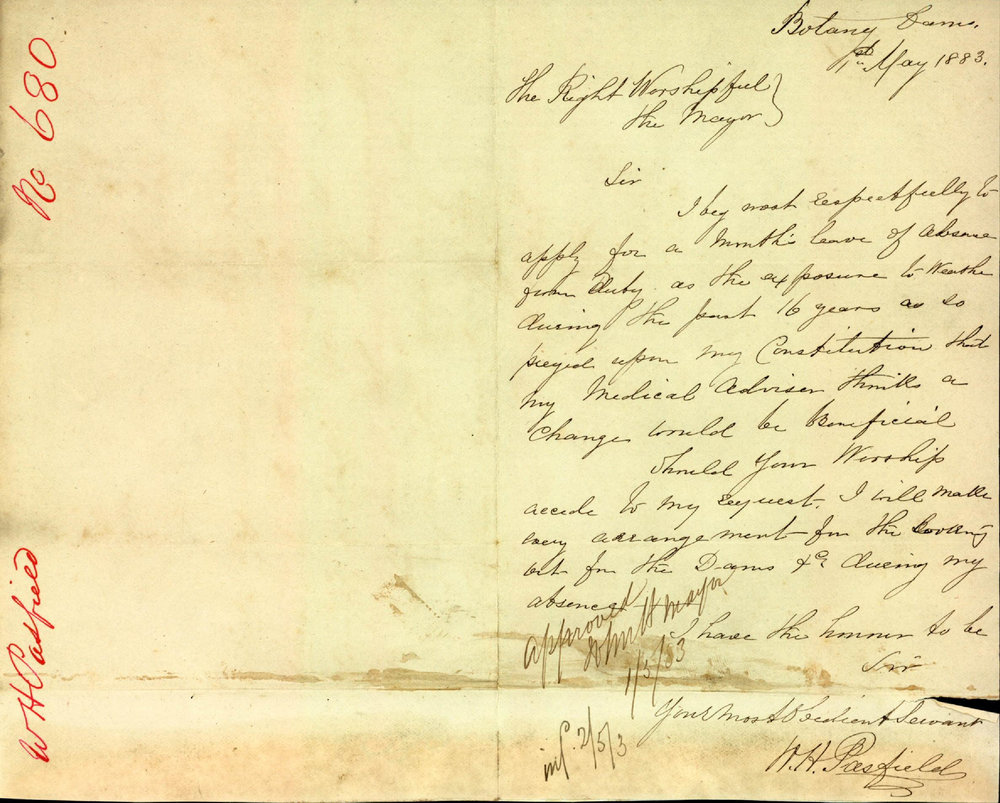 No 680
W H Pasfield
Botany Dams.
1st May 1883.
The Right Worshipful
the Mayor
Sir
I beg most respectfully to
apply for a Month's leave of absence
from duty as the exposure to Weather
during the past 16 years as so
preyed upon my Constitution that
my Medical Adviser thinks a
Change would be Beneficial
Should Your Worship
accede to my request, I will make
every arrangement for the looking
out for the Dams &c during my
absence.
I have the honner to be
Sir
Your Most Obedient Servant
W. H. Pasfield
Approved
Mayor
1/5/83
inf. 2/5/3